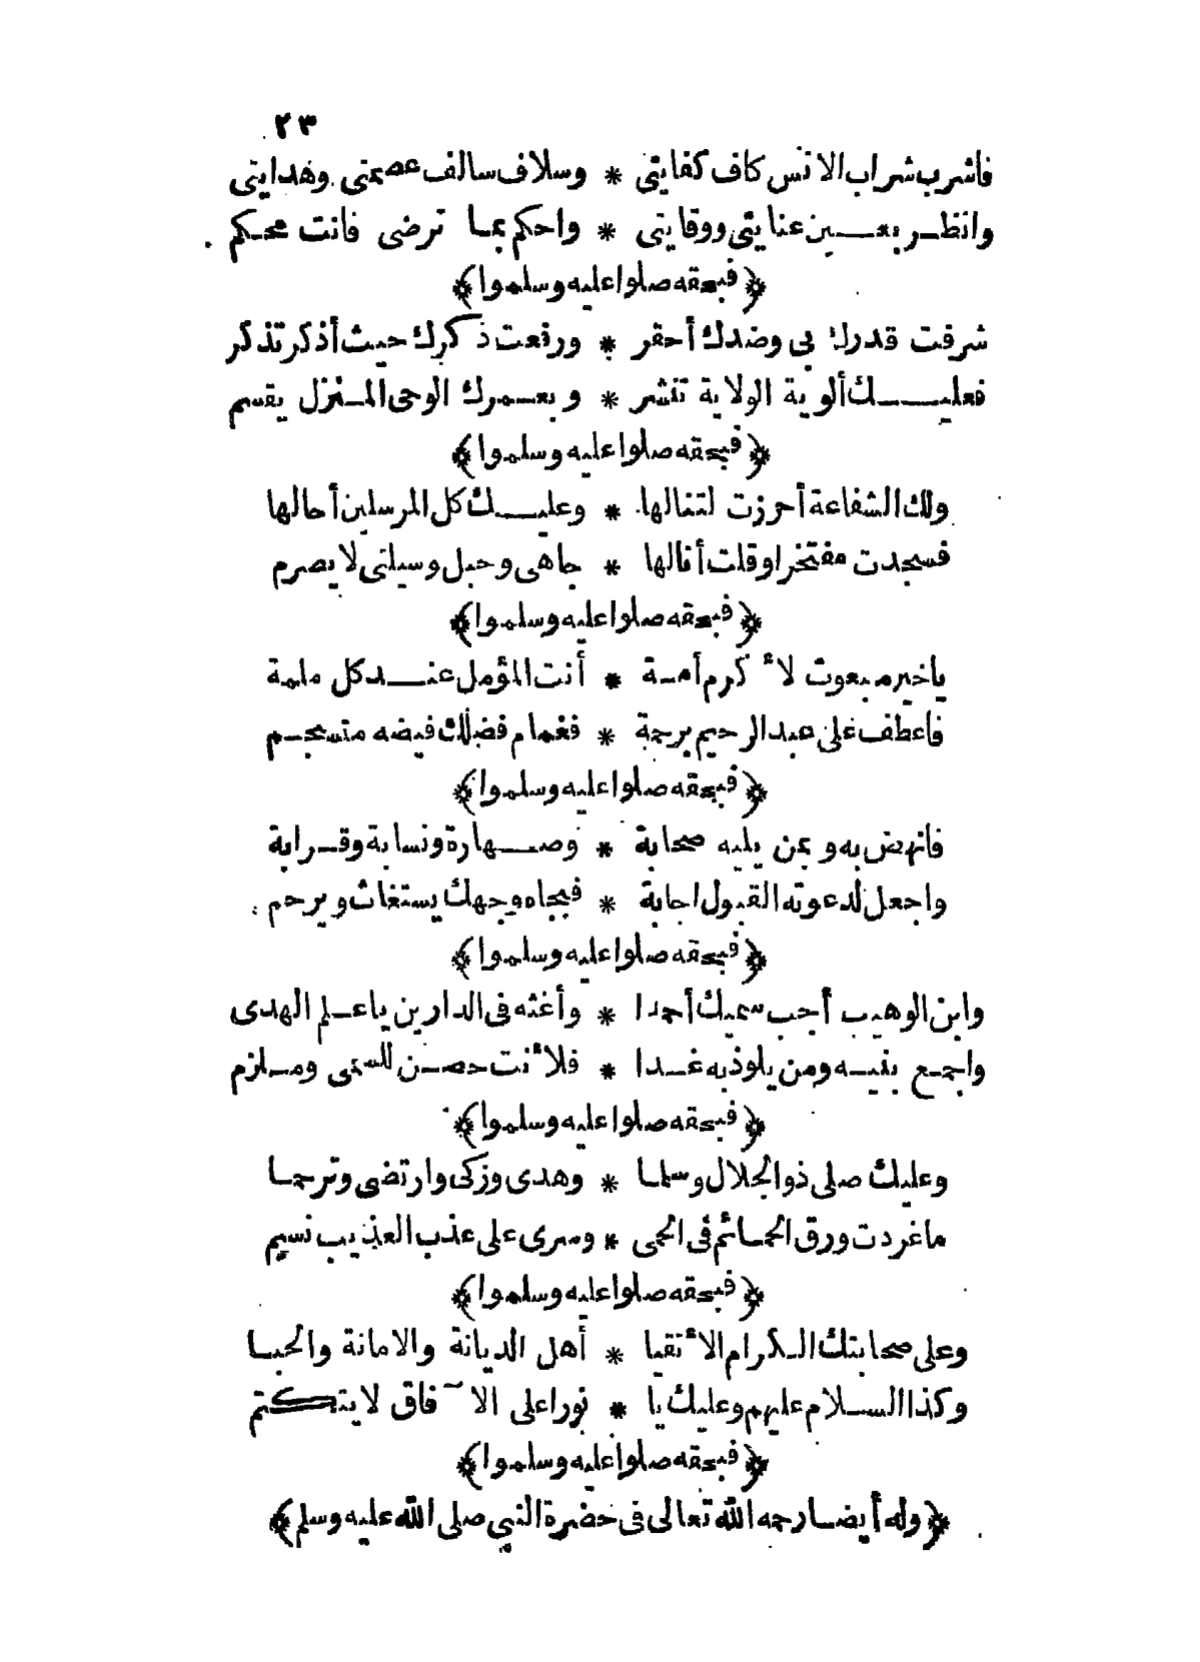 ٢٣
فاشرب شراب الانس كاف كفايتي * وسلاف سالف عصمتي وهدايتي
وانظر بعين عنايتي ووقايتي * واحكم بما ترضى فانت محكم
﴿فبحقه صلوا عليه وسلموا﴾
شرفت قدرك بي وضدك أحقر * ورفعت ذكرك حيث أذكر تذكر
فعليك ألوية الولاية تنشر * وبعمرك الوحى المنزل يقسم
﴿فبحقه صلوا عليه وسلموا﴾
ولك الشفاعة أحرزت لتنالها * وعليك كل المرسلين أحالها
فسجدت مفتخرا وقلت أنالها * جاهى وحبل وسيلتى لا يصرم
﴿فبحقه صلوا عليه وسلموا﴾
ياخير مبعوث لأكرم أمة * أنت المؤمل عند كل ملمة
فاعطف على عبد الرحيم برحمة * فغمام فضلك فيضه متسجم
﴿فبحقه صلوا عليه وسلموا﴾
فانهض به وبمن يليه صحابة * وصهارة ونسابة وقرابة
واجعل لدعوته القبول اجابة * فبجاه وجهك يستغاث ويرحم
﴿فبحقه صلوا عليه وسلموا﴾
وابن الوهيب أجب سميك أحمدا * وأغثه فى الدارين ياعلم الهدى
واجمع بنيه ومن يلوذ به غدا * فلأنت حصن للسمى وملزم
﴿فبحقه صلوا عليه وسلموا﴾
وعليك صلى ذو الجلال وسلما * وهدى وزكى وارتضى وترحما
ماغردت ورق الحمائم فى الحمى * وسرى على عذب العذيب نسيم
﴿فبحقه صلوا عليه وسلموا﴾
وعلى صحابتك الكرام الأتقيا * أهل الديانة والامانة والحبا
وكذا السلام عليهم وعليك يا * نورا على الآفاق لا يتكتم
﴿فبحقه صلوا عليه وسلموا﴾
﴿وله أيضا رحمه الله تعالى فى حضرة النبي صلى الله عليه وسلم﴾